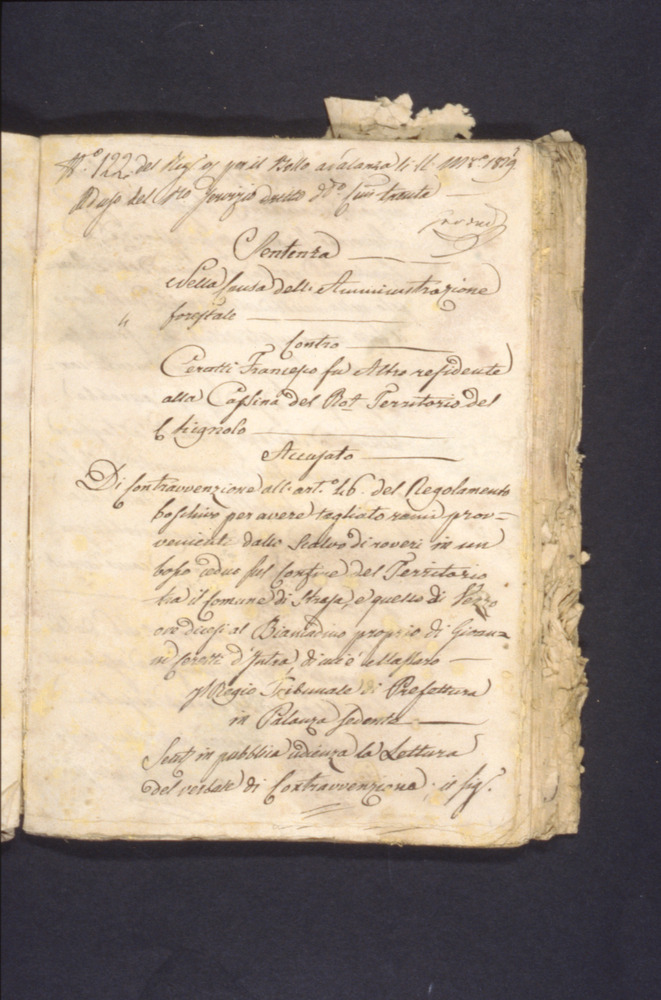 N.° 122 del Reg. per il Bollo a Palanza li 11. 1829
Ad uso del Servizio
Sentenza
Nella Causa dell'Amministrazione
forestale
Contro
Ceratti Francesco fu Altro residente
alla Cassina del Bot Territorio del
Chignolo
Accusato
Di Contravvenzione all'art.° 46. del Regolamento
boschivo per avere tagliato rami prov=
venienti dallo Scalvo di roveri in un
bosco ceduo sul Confine del Territorio
tra il Comune di e quello di
ove dicesi al proprio di Giovan=
ni Ceretti d'Intra di cui è Massaro
Il Regio Tribunale di Prefettura
in Palanza sedente
Sent. in pubblica udienza la Lettura
del verbale di Contravvenzione; il Sig.